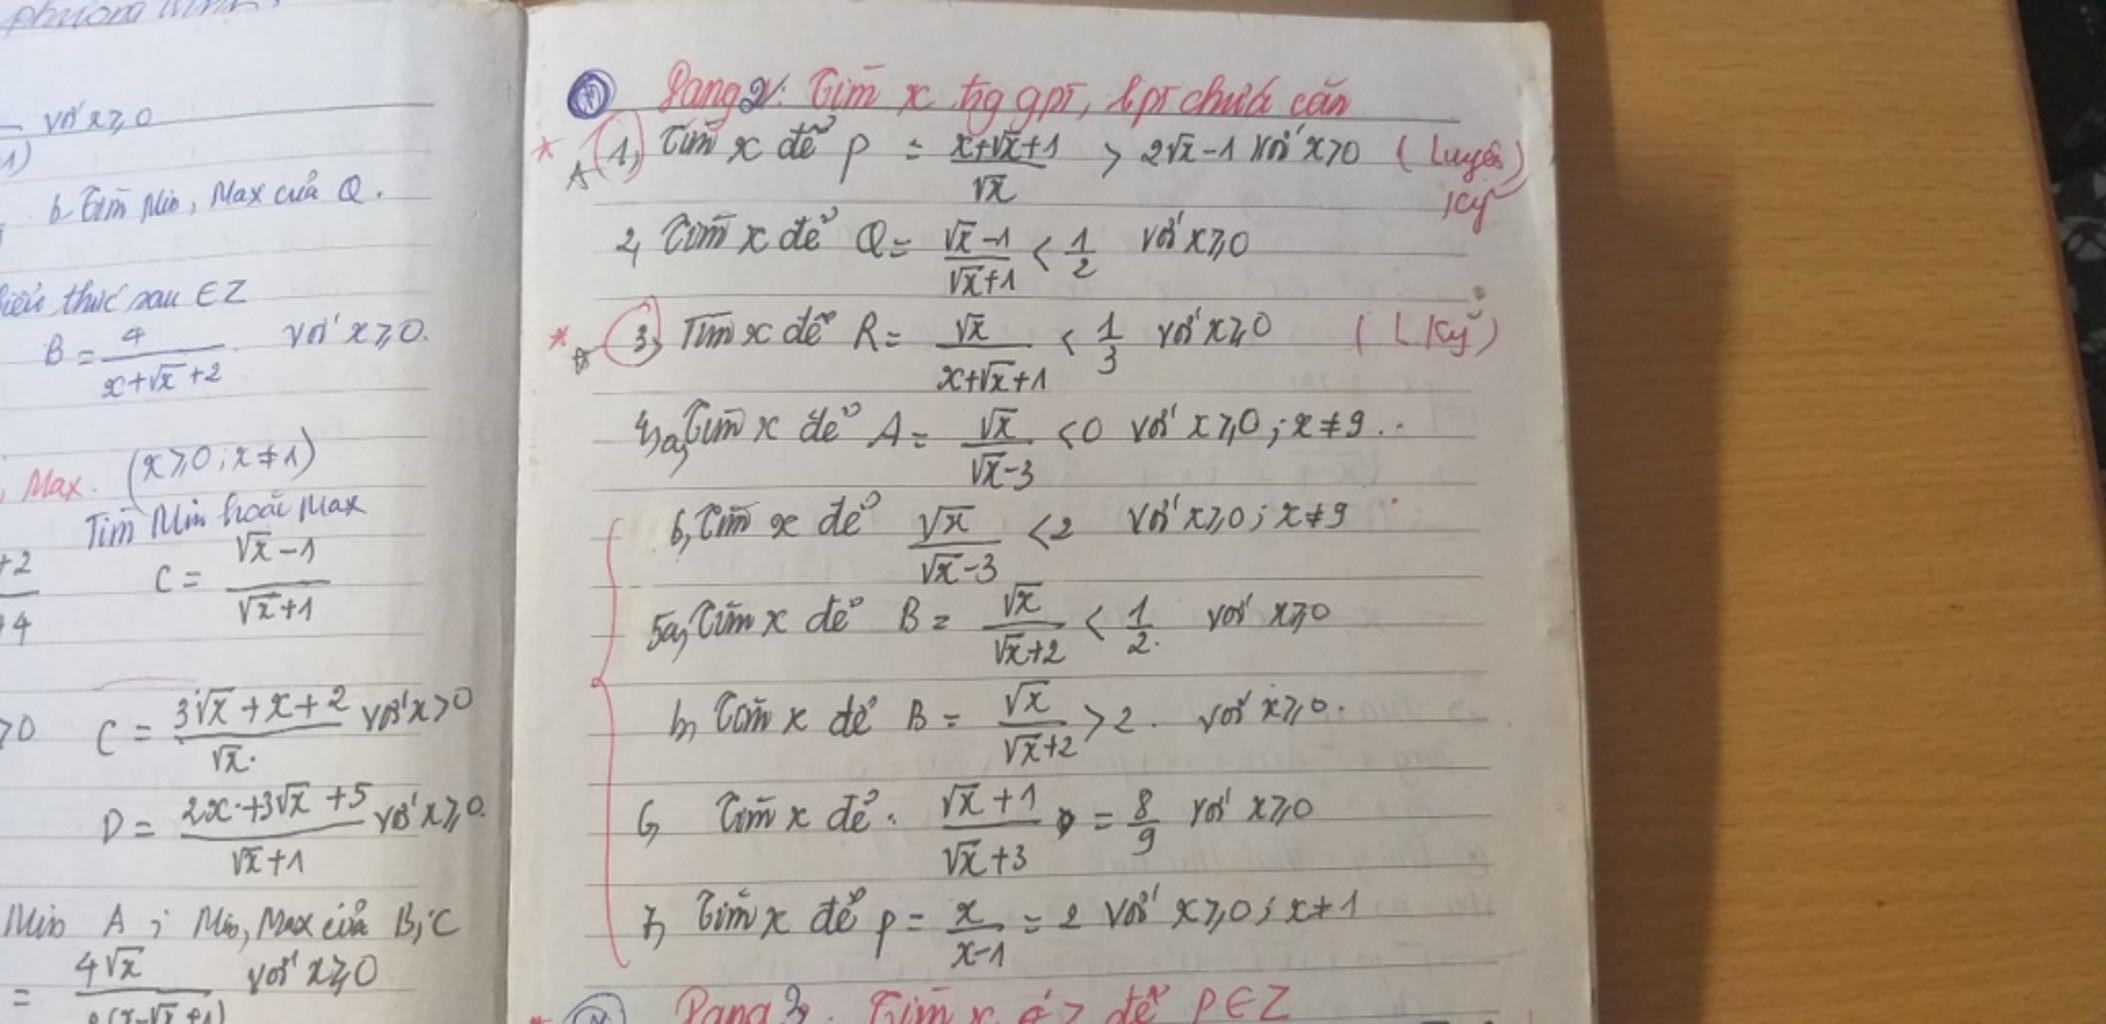 với x≥0
1)
b. Tìm Min, Max của Q.
thức sau ∈ Z
B = 4/(x+√x+2) với x≥0.
Max. (x≥0; x≠1)
Tìm Min hoặc Max
+2/+4 C = (√x-1)/(√x+1)
>0 C = (3√x+x+2)/√x. với x>0
D = (2x+3√x+5)/(√x+1) với x≥0.
Min A; Min, Max của B; C
= 4√x với x≥0
Dạng 2: Tìm x trg gpt, bpt chứa căn
1, Tìm x để P = (x+√x+1)/√x > 2√x-1 với x>0 (Luyện kỹ)
2, Tìm x để Q = (√x-1)/(√x+1) < 1/2 với x≥0
3, Tìm x để R = √x/(x+√x+1) < 1/3 với x≥0 (L. kỹ)
4, a, Tìm x để A = √x/(√x-3) <0 với x≥0; x≠9..
b, Tìm x để √x/(√x-3) <2 với x≥0; x≠9
5a, Tìm x để B = √x/(√x+2) < 1/2. với x≥0
b, Tìm x để B = √x/(√x+2) >2. với x≥0.
6, Tìm x để. (√x+1)/(√x+3) = 8/9 với x≥0
7, Tìm x để P = x/(x-1) = 2 với x≥0; x≠1
Dạng 3. Tìm x ∈ Z để P∈Z